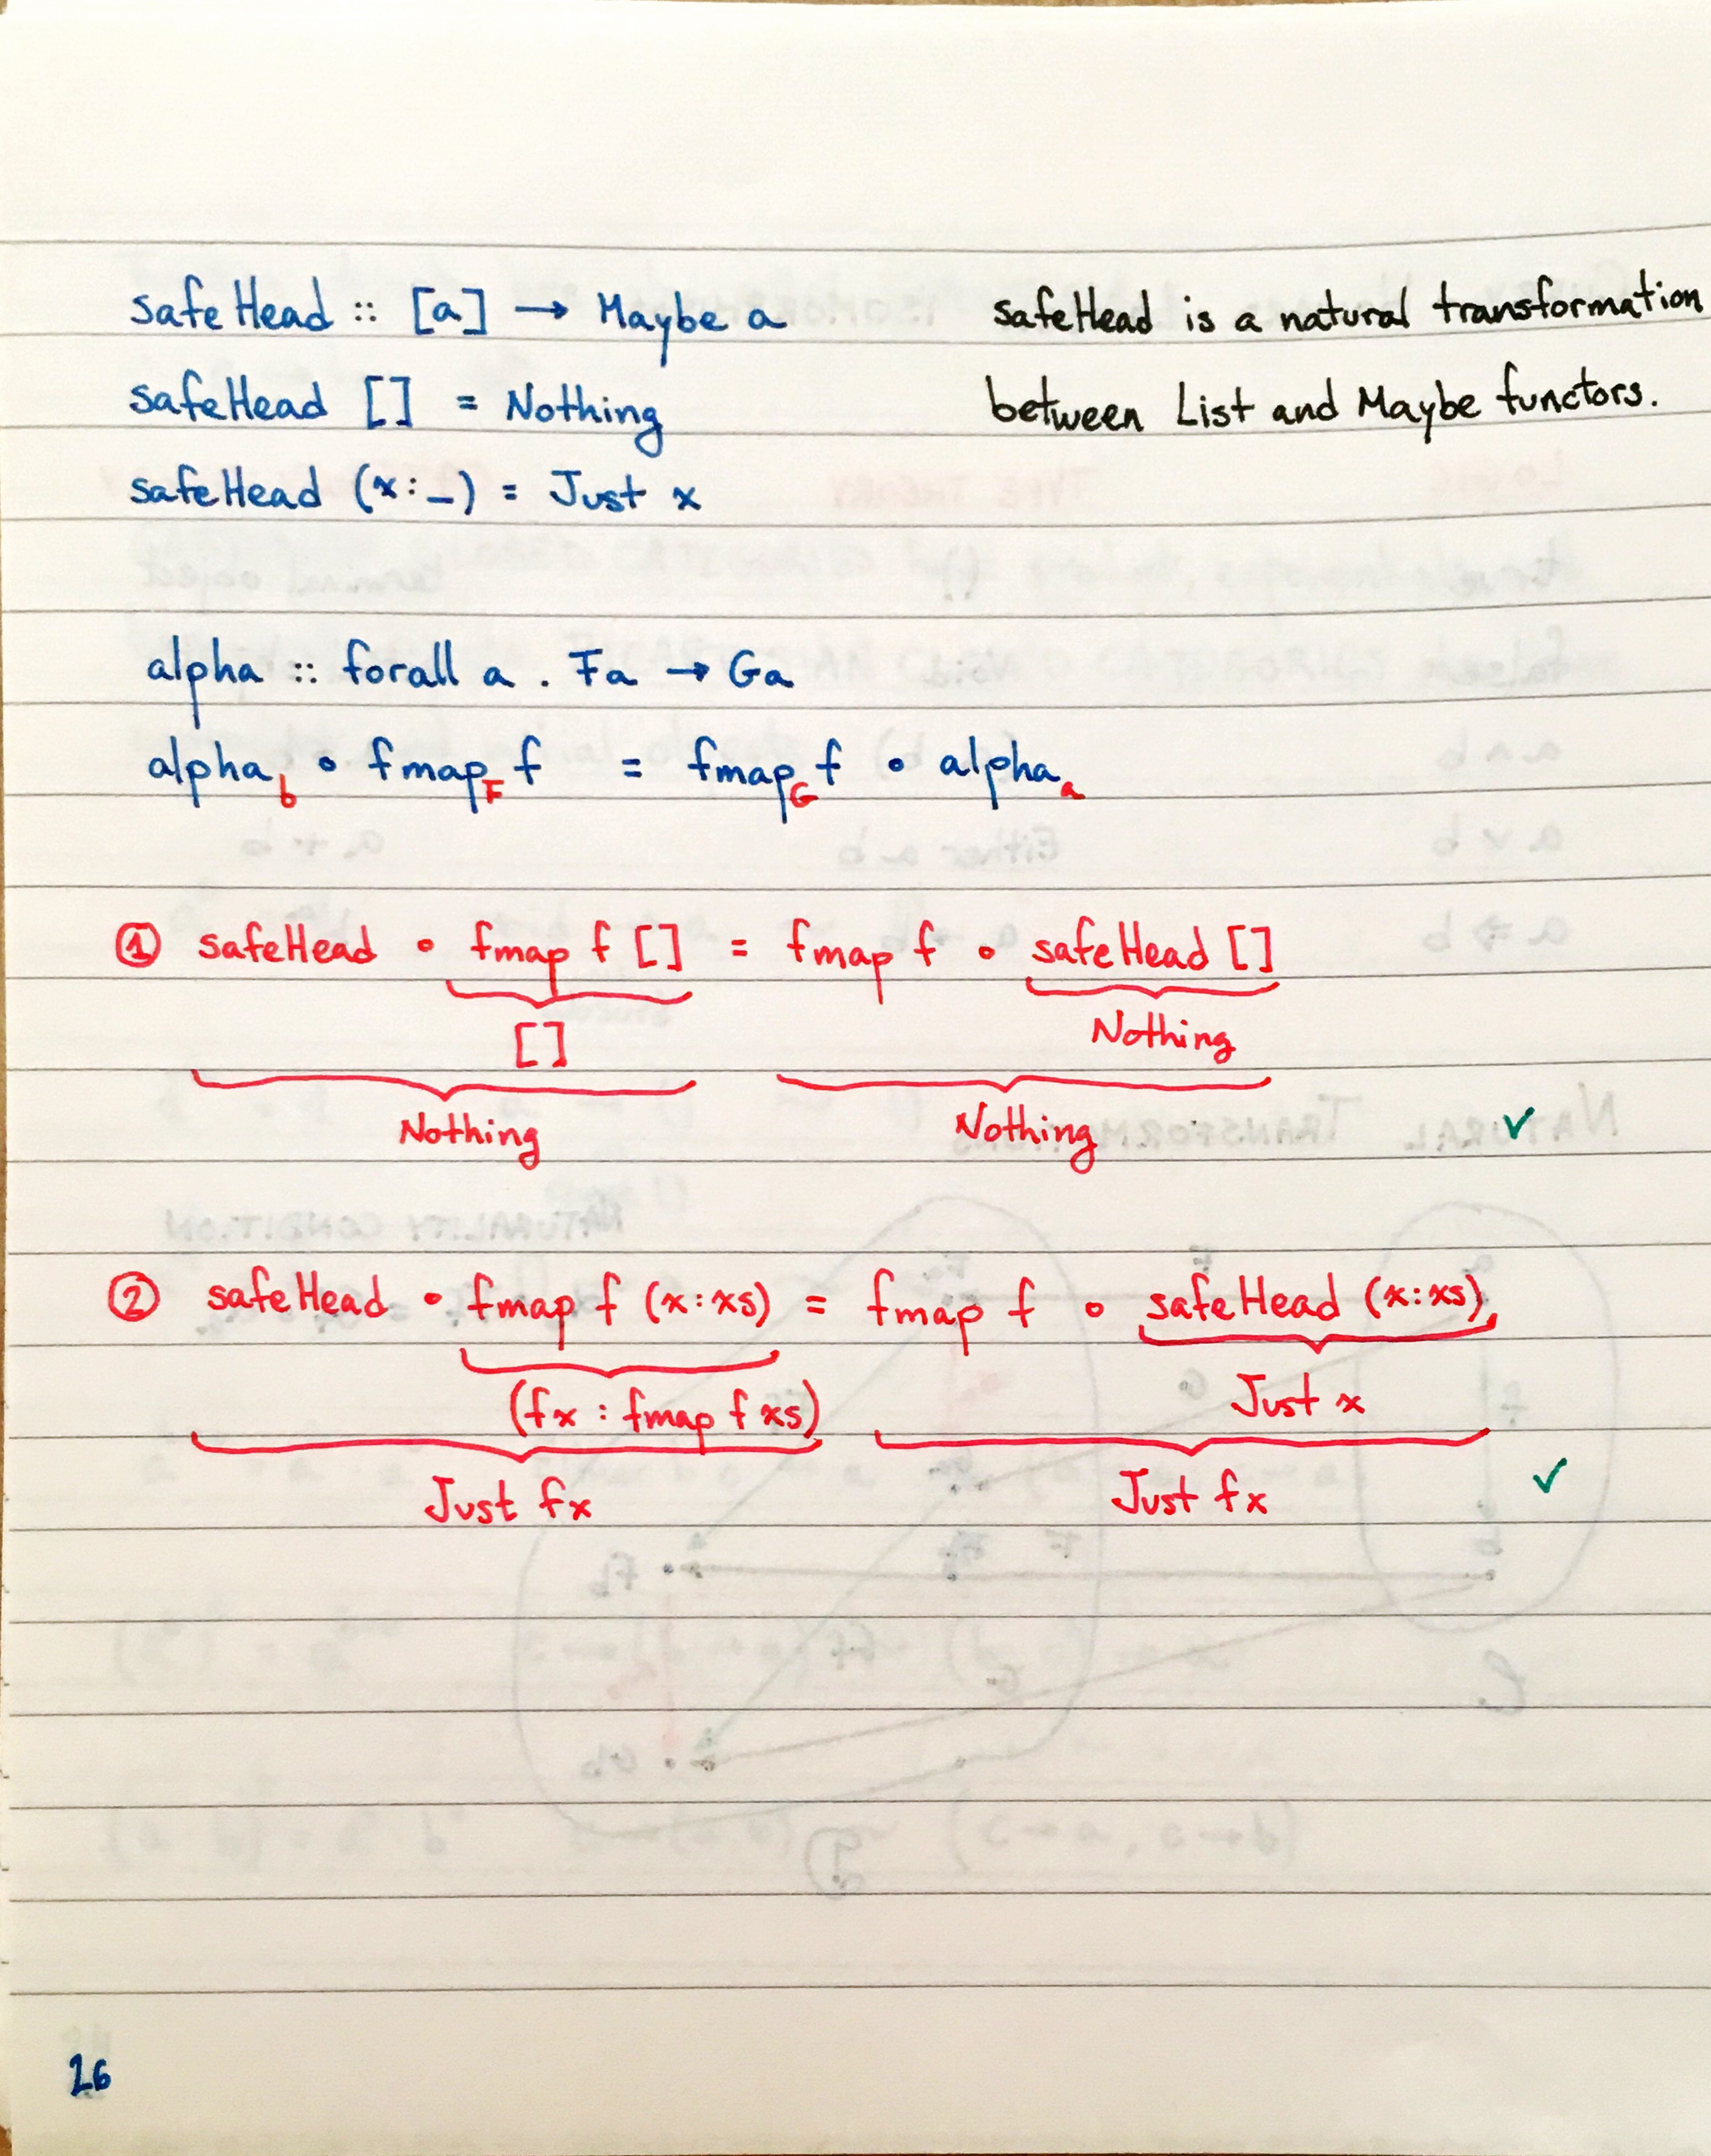 safeHead :: [a] → Maybe a
safeHead [] = Nothing
safeHead (x:_) = Just x
safeHead is a natural transformation
between List and Maybe functors.
alpha :: forall a . Fa → Ga
alpha_b ∘ fmap_F f = fmap_G f ∘ alpha_a
① safeHead ∘ fmap f [] = fmap f ∘ safeHead []
[] Nothing
Nothing Nothing ✓
② safeHead ∘ fmap f (x:xs) = fmap f ∘ safeHead (x:xs)
(fx : fmap f xs) Just x
Just fx Just fx ✓
26